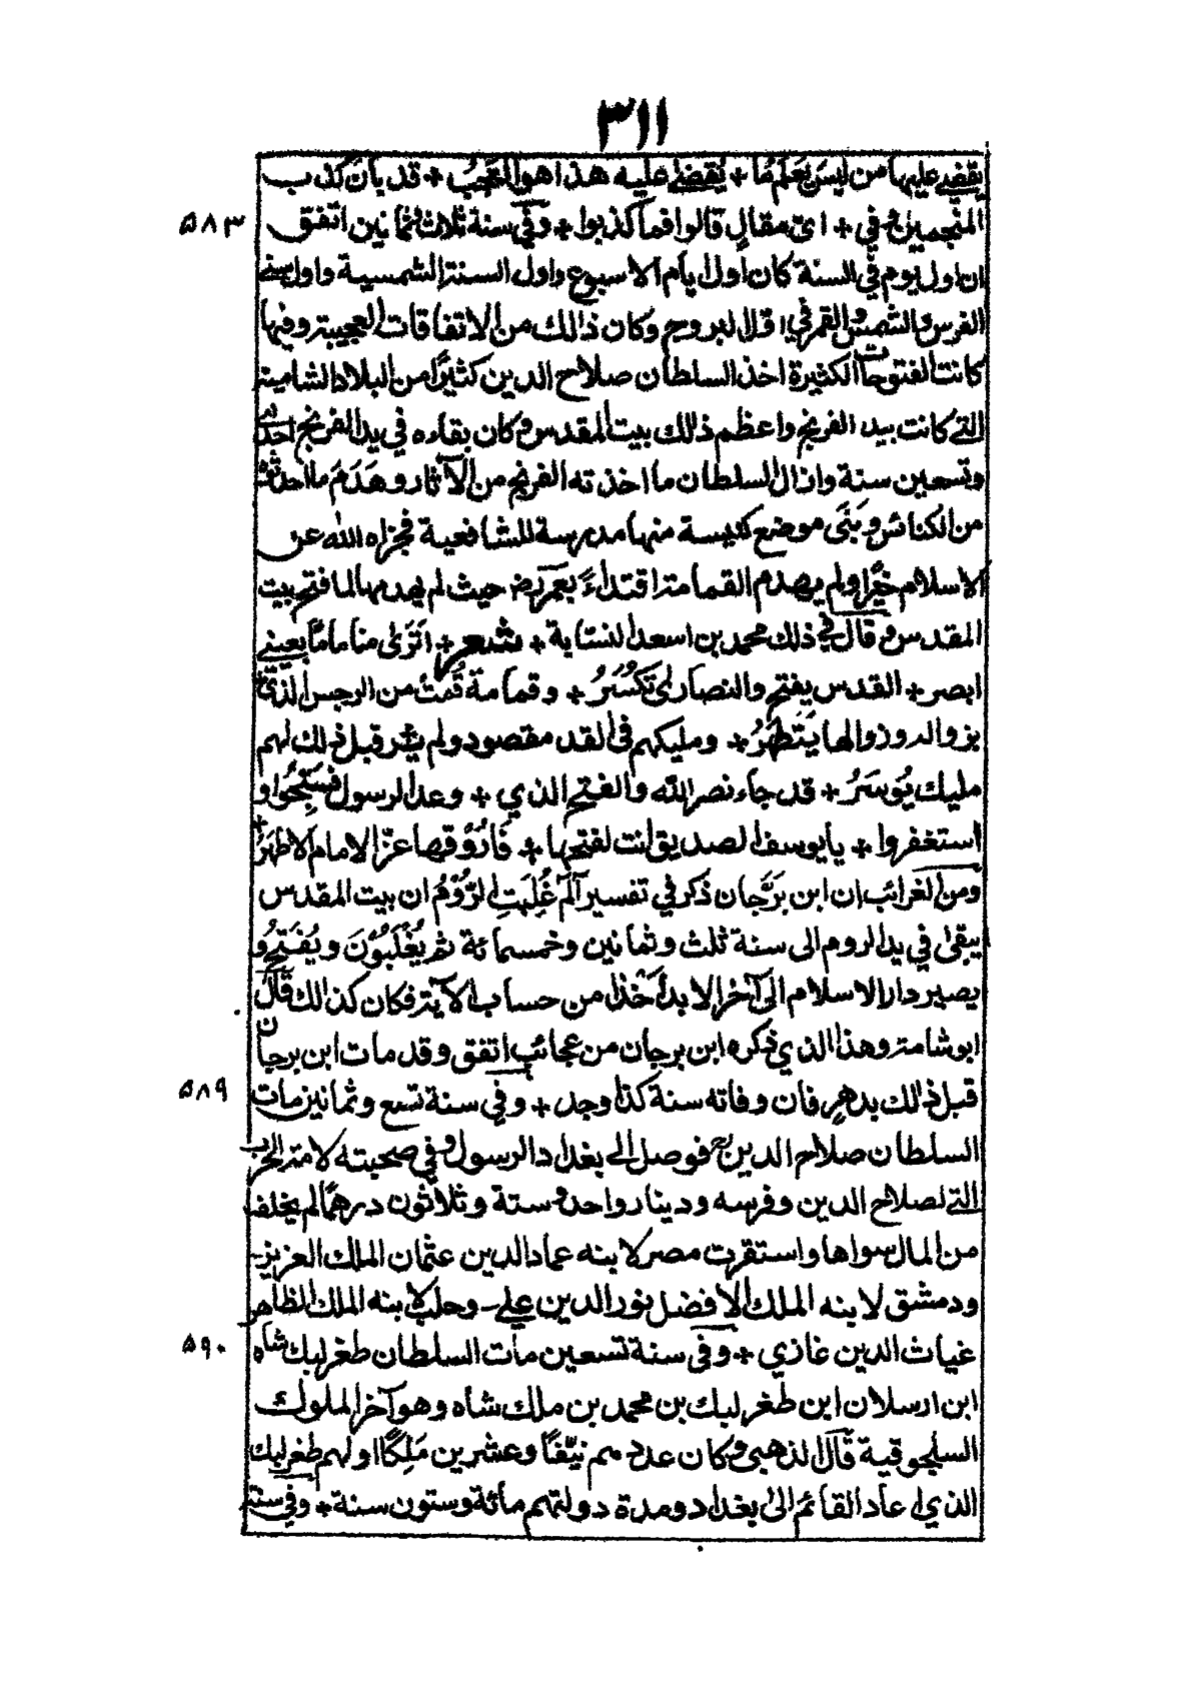 ٣١١
يقضي عليها من ليس يعلم ما + يُقضى عليه هذا هو العجب + قد بان كذب
المنجمين في + اى مقالٍ قالوا فما كذبوا + وفي سنة ثلاث وثمانين اتفق
٥٨٣
ان اول يوم في السنة كان اول ايام الاسبوع واول السنة الشمسية واول سني
الفرس والشمس والقمر في اول البروج وكان ذالك من الاتفاقات العجيبة وفيها
كانت الفتوحات الكثيرة اخذ السلطان صلاح الدين كثيرًا من البلاد الشامية
التي كانت بيد الفرنج واعظم ذالك بيت المقدس وكان بقاءه في يد الفرنج احدى
وتسعين سنة وازال السلطان ما اخذته الفرنج من الآثار وهَدَمَ ما احدثته
من الكنائس وبَنَى موضع كنيسة منها مدرسة للشافعية فجزاه الله عن
الاسلام خيرًا ولم يهدم القمامة اقتداءً بعمر رض حيث لم يهدمها لما فتح بيت
المقدس وقال في ذلك محمد بن اسعد النسّابة + شعر + اَتَرَى مناما مّا بعيني
ابصر + القدس يفتح والنصارى تَكسُرُ + وقمامة قُمّت من الرجس الذي
بزواله وزوالها يَتَطَهَّرُ + ومليكهم في القد مقصود ولم يُر قبل ذلك لهم
مليك يُوسَرُ + قد جاء نصر الله والفتح الذي + وعد الرسول فسَبِّحُوا و
استغفروا + يا يوسف الصديق انت لفتحها + فَارُوقها عزّ الامام الاطهَرُ +
ومن الغرائب ان ابن بَرَّجان ذكر في تفسير آلٓمٓ غُلِبَتِ الرُّوْمُ ان بيت المقدس
يبقى في يد الروم الى سنة ثلث وثمانين وخمسمائة ثم يُغْلَبُوْنَ ويُفتَح و
يصير دار الاسلام الى آخر الابد اَخْذًا من حساب الآية فكان كذالك قال
ابو شامة وهذا الذي ذكره ابن برجان من عجائب اتفق وقد مات ابن برجان
قبل ذالك بدهرٍ فان وفاته سنة كذا وجد + وفي سنة تسع وثمانين مات
٥٨٩
السلطان صلاح الدين رح فوصل الى بغداد الرسول وفي صحبته لامة الحرب
التي لصلاح الدين وفرسه ودينار واحد وستة وثلاثون درهمًا لم يخلف
من المال سواها واستقرت مصر لابنه عماد الدين عثمان الملك العزيز
ودمشق لابنه الملك الافضل نور الدين علي وحلب لابنه الملك الظاهر
غياث الدين غازي + وفي سنة تسعين مات السلطان طغرلبك شاه
٥٩٠
ابن ارسلان ابن طغرلبك بن محمد بن ملك شاه وهو آخر الملوك
السلجوقية قال الذهبي وكان عددهم نيّفًا وعشرين مَلِكًا اولهم طغرلبك
الذي اعاد القائم الى بغداد ومدة دولتهم مائة وستون سنة + وفي سنة